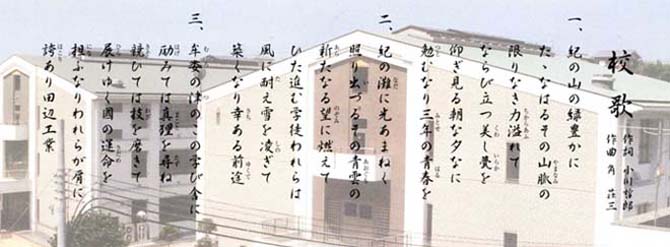 校歌
作詞 小川哲郎
作曲 角 荘三
一、紀の山の緑豊かに
たゝなはるその山脈の
限りなき力溢れて
ならび立つ美し甍を
仰ぎ見る朝な夕なに
勉むなり三年の青春を
二、紀の灘に光あまねく
照り出づるその青雲の
新たなる望に燃えて
ひた進む学徒われらは
風に耐え雪を凌ぎて
築くなり幸ある前途
三、牟婁の津のこの学び舎に
励みては真理を尋ね
競ひては技を磨きて
展けゆく國の運命を
担ふなりわれらが肩に
誇あり田辺工業